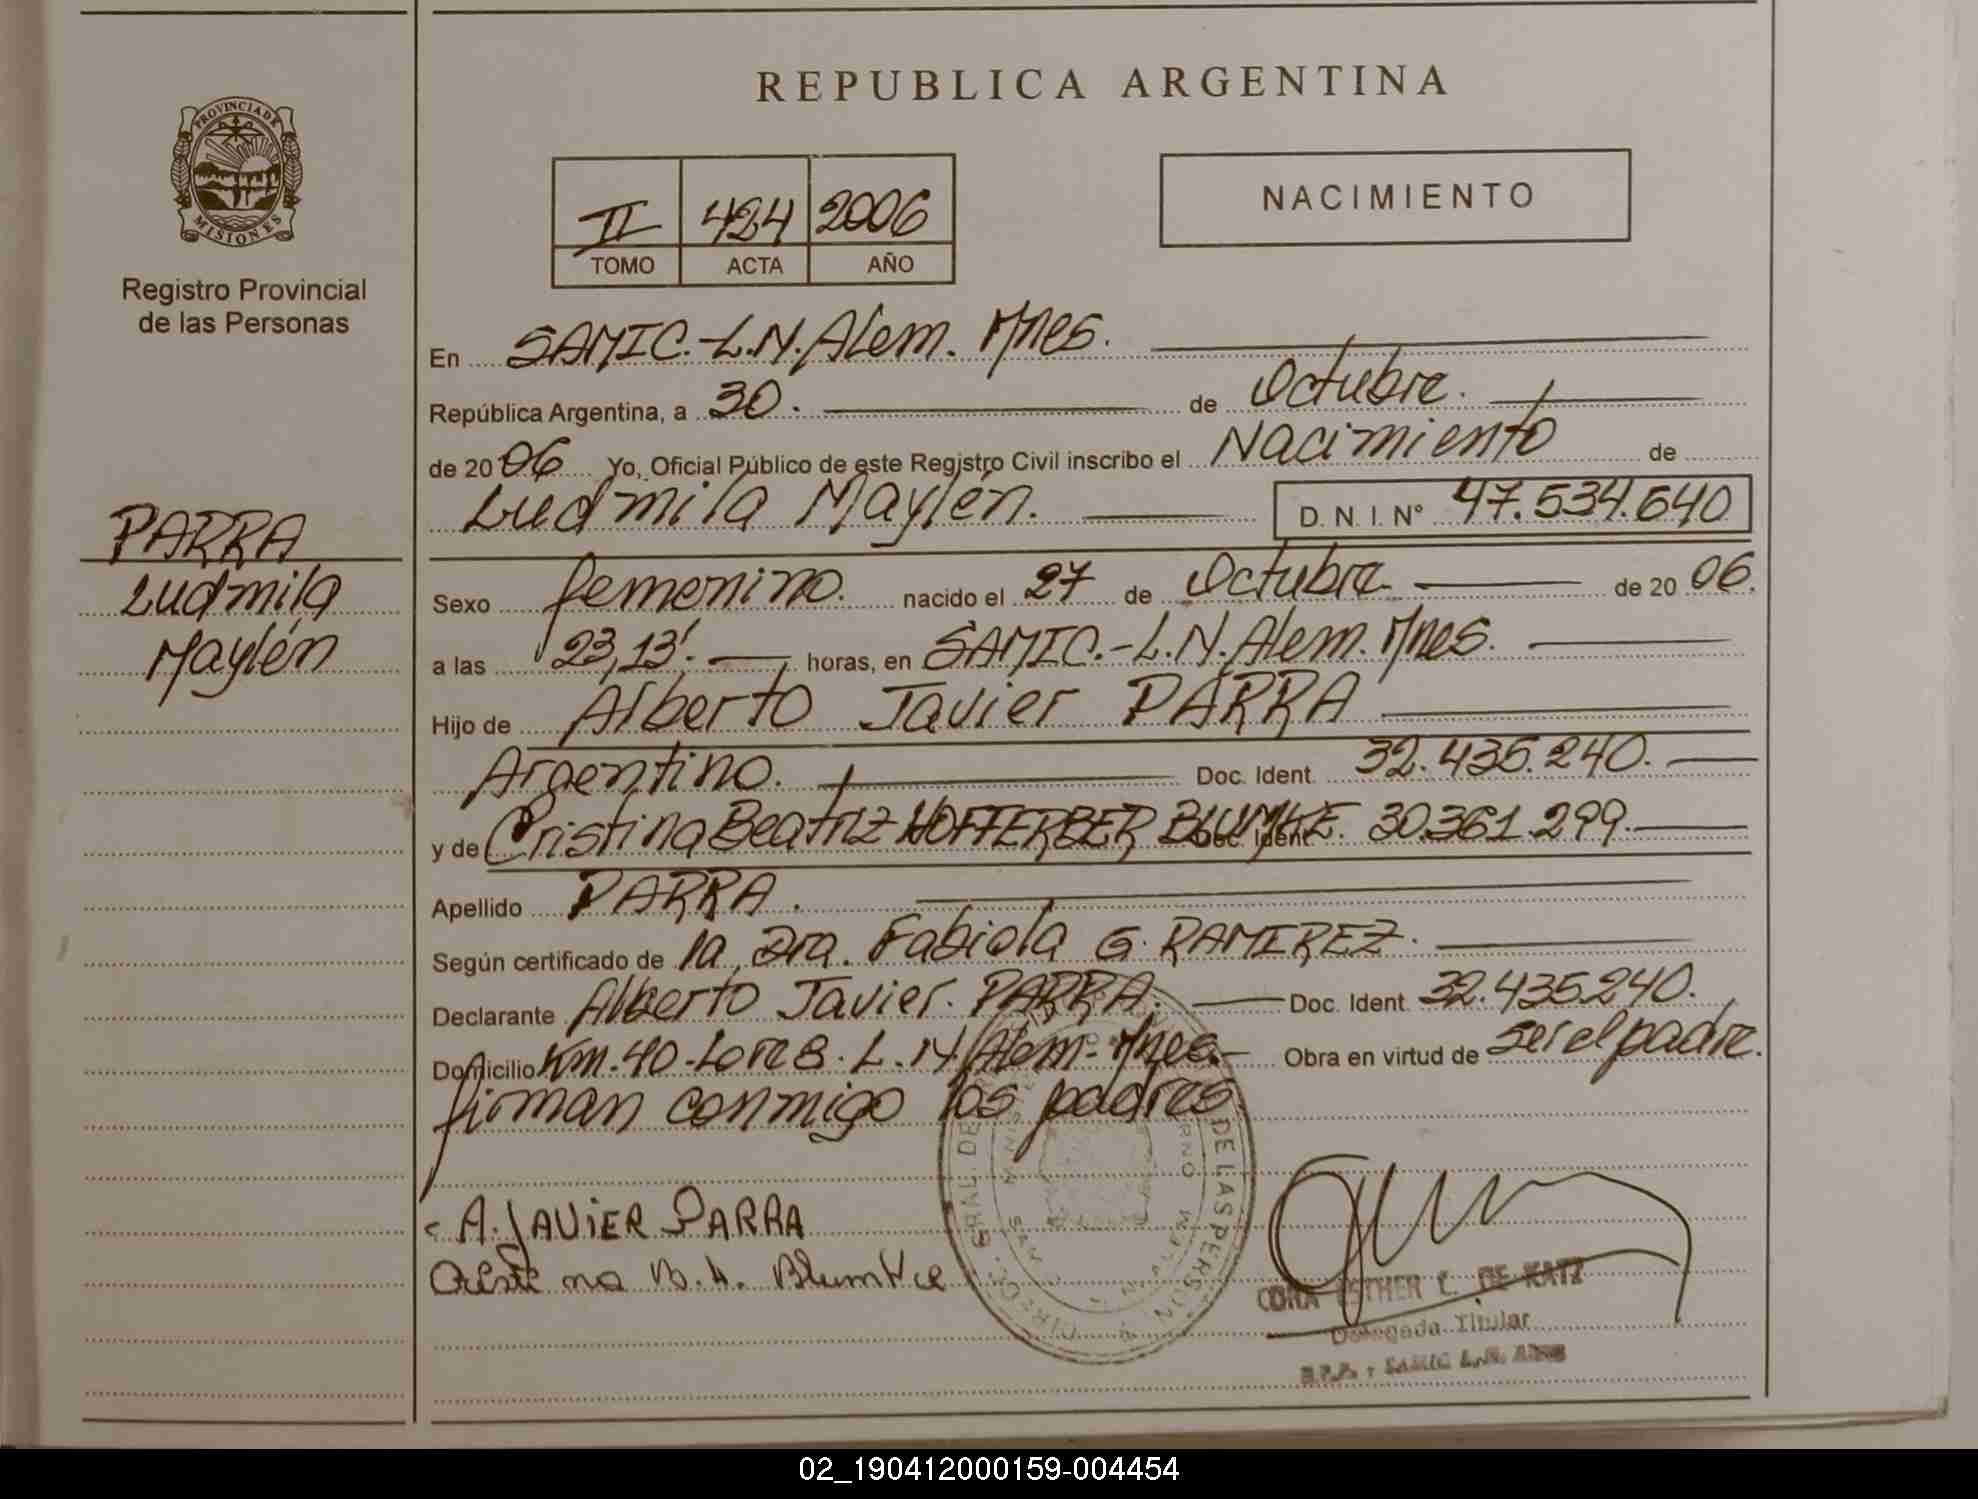 REPUBLICA ARGENTINA
PROVINCIA DE
MISIONES
Registro Provincial
de las Personas
II 424 2006
TOMO ACTA AÑO
NACIMIENTO
En SAMIC.-L.N.Alem. Mnes.
República Argentina, a 30. de Octubre.
de 2006 Yo, Oficial Público de este Registro Civil inscribo el Nacimiento de
Ludmila Maylén. D. N. I. N° 47.534.640
PARRA
Ludmila
Maylén
Sexo femenino. nacido el 27 de Octubre de 2006.
a las 23,13'. horas, en SAMIC.-L.N.Alem. Mnes.
Hijo de Alberto Javier PARRA
Argentino. Doc. Ident. 32.435.240.
y de Cristina Beatriz HOFFERBER BLUMKE. Doc. Ident 30.361.299.
Apellido PARRA.
Según certificado de la Dra. Fabiola G. RAMIREZ.
Declarante Alberto Javier. PARRA. Doc. Ident. 32.435.240.
Domicilio Km.40-Lote 8. L.N.Alem-Mnes. Obra en virtud de ser el padre.
firman conmigo los padres
A. JAVIER PARRA
B. H. Blumke
DE LAS PERSON
CORA ESTHER L. DE KATZ
Delegada Titular
R.P.P. - SAMIC L.N. ALEM
02_190412000159-004454